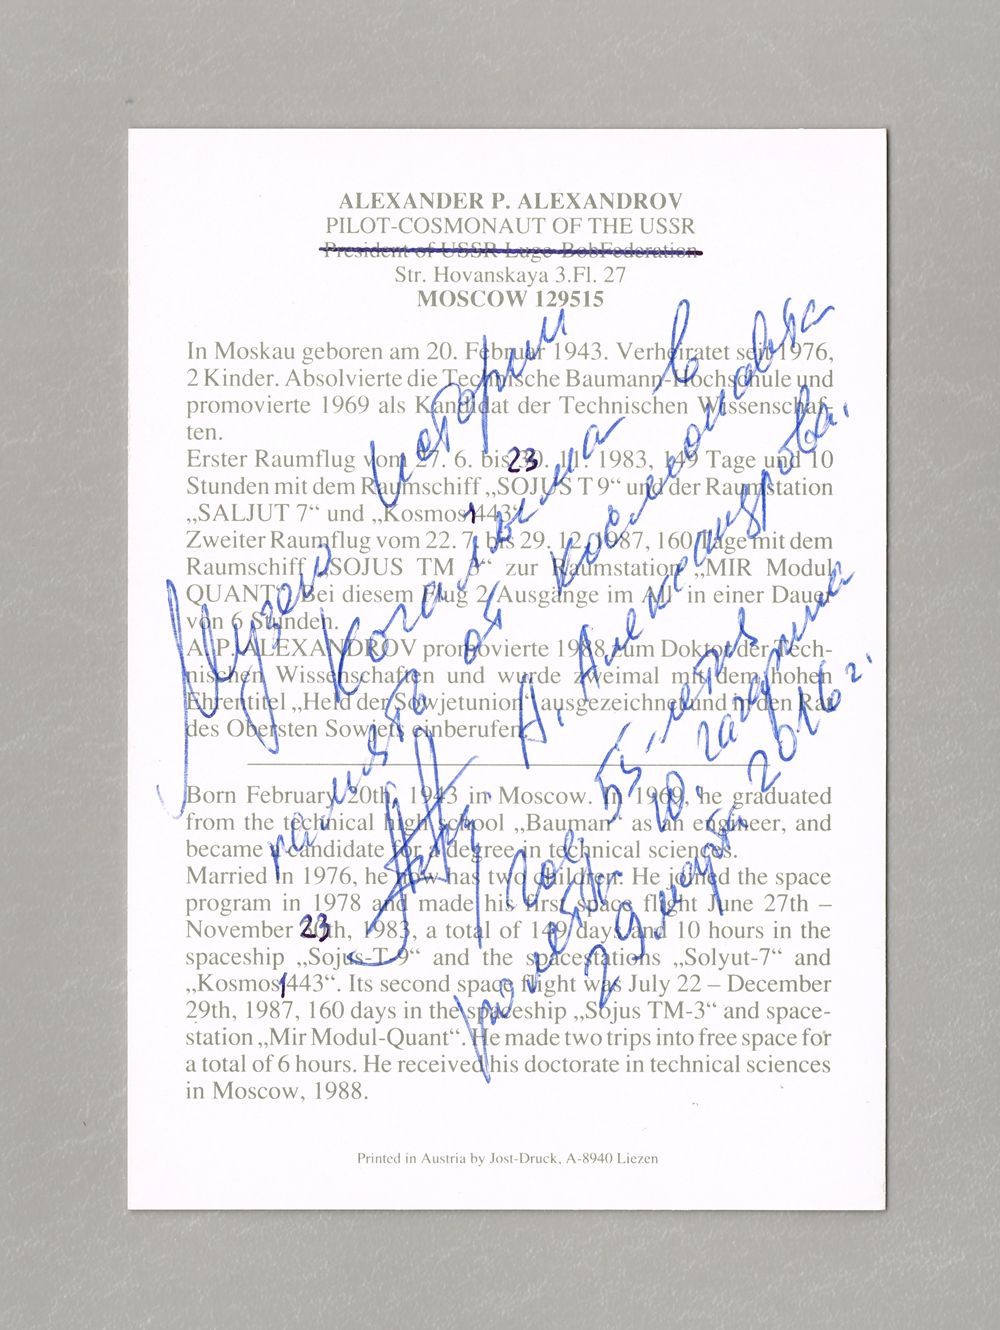 ALEXANDER P. ALEXANDROV
PILOT-COSMONAUT OF THE USSR
President of USSR Luge-BobFederation
Str. Hovanskaya 3.Fl. 27
MOSCOW 129515
In Moskau geboren am 20. Februar 1943. Verheiratet seit 1976,
2 Kinder. Absolvierte die Technische Baumann-Hochschule und
promovierte 1969 als Kandidat der Technischen Wissenschaf-
ten.
Erster Raumflug vom 27. 6. bis 23. 11. 1983, 149 Tage und 10
Stunden mit dem Raumschiff „SOJUS T 9“ und der Raumstation
„SALJUT 7“ und „Kosmos 1443“.
Zweiter Raumflug vom 22. 7. bis 29. 12. 1987, 160 Tage mit dem
Raumschiff „SOJUS TM 3“ zur Raumstation „MIR Modul
QUANT“. Bei diesem Flug 2 Ausgänge im All in einer Dauer
von 6 Stunden.
A. P. ALEXANDROV promovierte 1988 zum Doktor der Tech-
nischen Wissenschaften und wurde zweimal mit dem hohen
Ehrentitel „Held der Sowjetunion“ ausgezeichnet und in den Rat
des Obersten Sowjets einberufen.
Born February 20th, 1943 in Moscow. In 1969, he graduated
from the technical high school „Bauman“ as an engineer, and
became a candidate for a degree in technical sciences.
Married in 1976, he now has two children. He joined the space
program in 1978 and made his first space flight June 27th –
November 23th, 1983, a total of 149 days and 10 hours in the
spaceship „Sojus-T-9“ and the spacestations „Solyut-7“ and
„Kosmos 1443“. Its second space flight was July 22 – December
29th, 1987, 160 days in the spaceship „Sojus TM-3“ and space-
station „Mir Modul-Quant“. He made two trips into free space for
a total of 6 hours. He received his doctorate in technical sciences
in Moscow, 1988.
Printed in Austria by Jost-Druck, A-8940 Liezen
Музею истории
г. Когалыма в
память от космонавта
А. Александрова.
год 55-летия
полёта Ю. Гагарина
29 марта 2016 г.